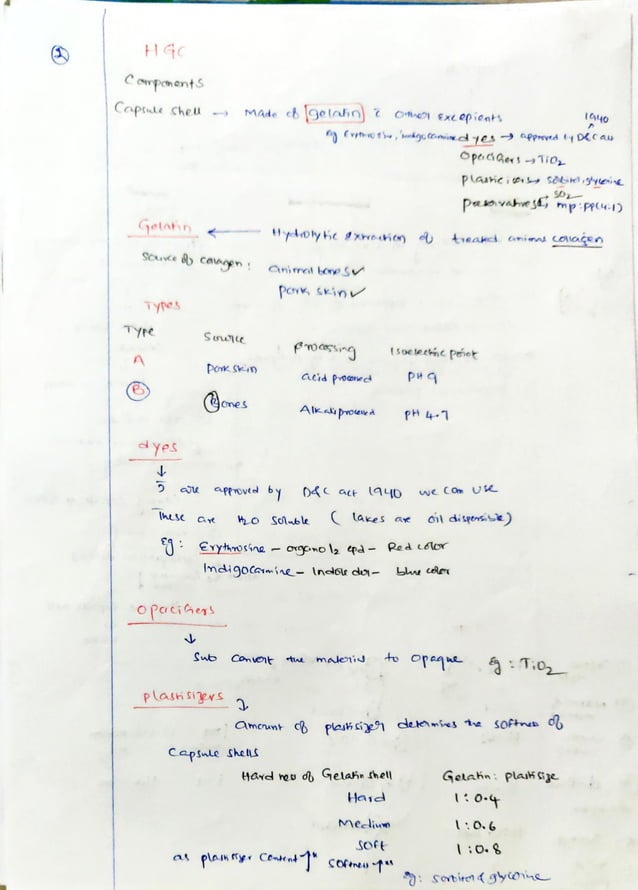 2
HGC
Components
Capsule shell → Made of gelatin c̄ other excepients
1940
eg Erythrosine, indigocarmine dyes → approved by D&C act
Opacifiers → TiO2
Plasticisers → sorbitol, glycerine
SO2
preservatives → mp:pp(4:1)
Gelatin ← Hydrolytic extraction of treated animal collagen
Source of collagen : animal bones ✓
pork skin ✓
Types
Type Source processing Isoelectric point
A pork skin acid processed pH 9
B Bones Alkali processed pH 4.7
dyes
↓
are approved by D&C act 1940 we can use
These are H2O soluble ( lakes are oil dispersible)
Eg : Erythrosine - organo I2 cpd - Red color
Indigocarmine - Indole der - blue color
Opacifiers
↓
Sub convert the material to opaque eg : TiO2
plastisizers
↓
amount of plastisizer determines the softness of
capsule shells
Hardness of Gelatin shell Gelatin : plastisize
Hard 1 : 0.4
Medium 1 : 0.6
Soft 1 : 0.8
as plastisizer content ↑s softness ↑es
eg : sorbitol & glycerine